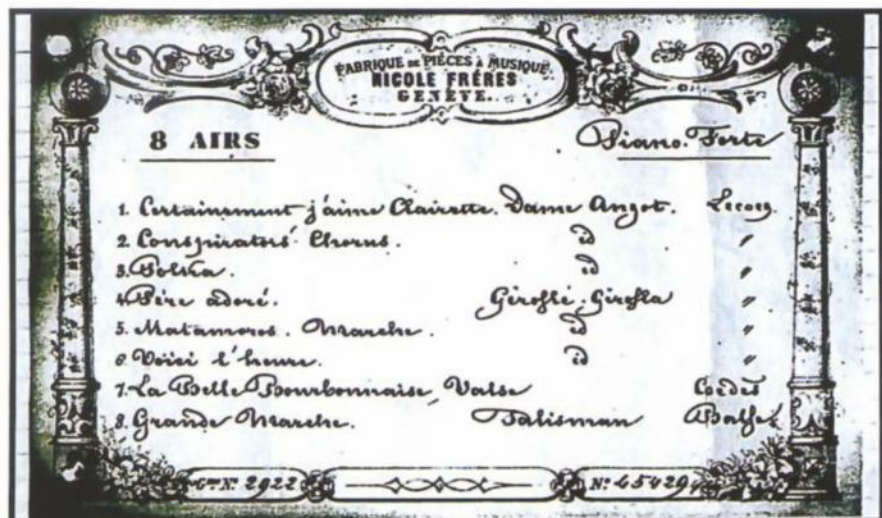 FABRIQUE DE PIÈCES À MUSIQUE
NICOLE FRÈRES
GENÈVE.
8 AIRS Piano. Forte
1. Certainement j'aime Clairette. Dame Angot. Lecocq
2. Conspirators' Chorus. id "
3. Polka. id "
4. Père adoré. Giroflé. Girofla "
5. Matamoros. Marche. id "
6. Voici l'heure. id "
7. La Belle Bourbonnaise, Valse Coedès
8. Grande Marche. Talisman Balfe
Gme Nº 2922 Nº 45429